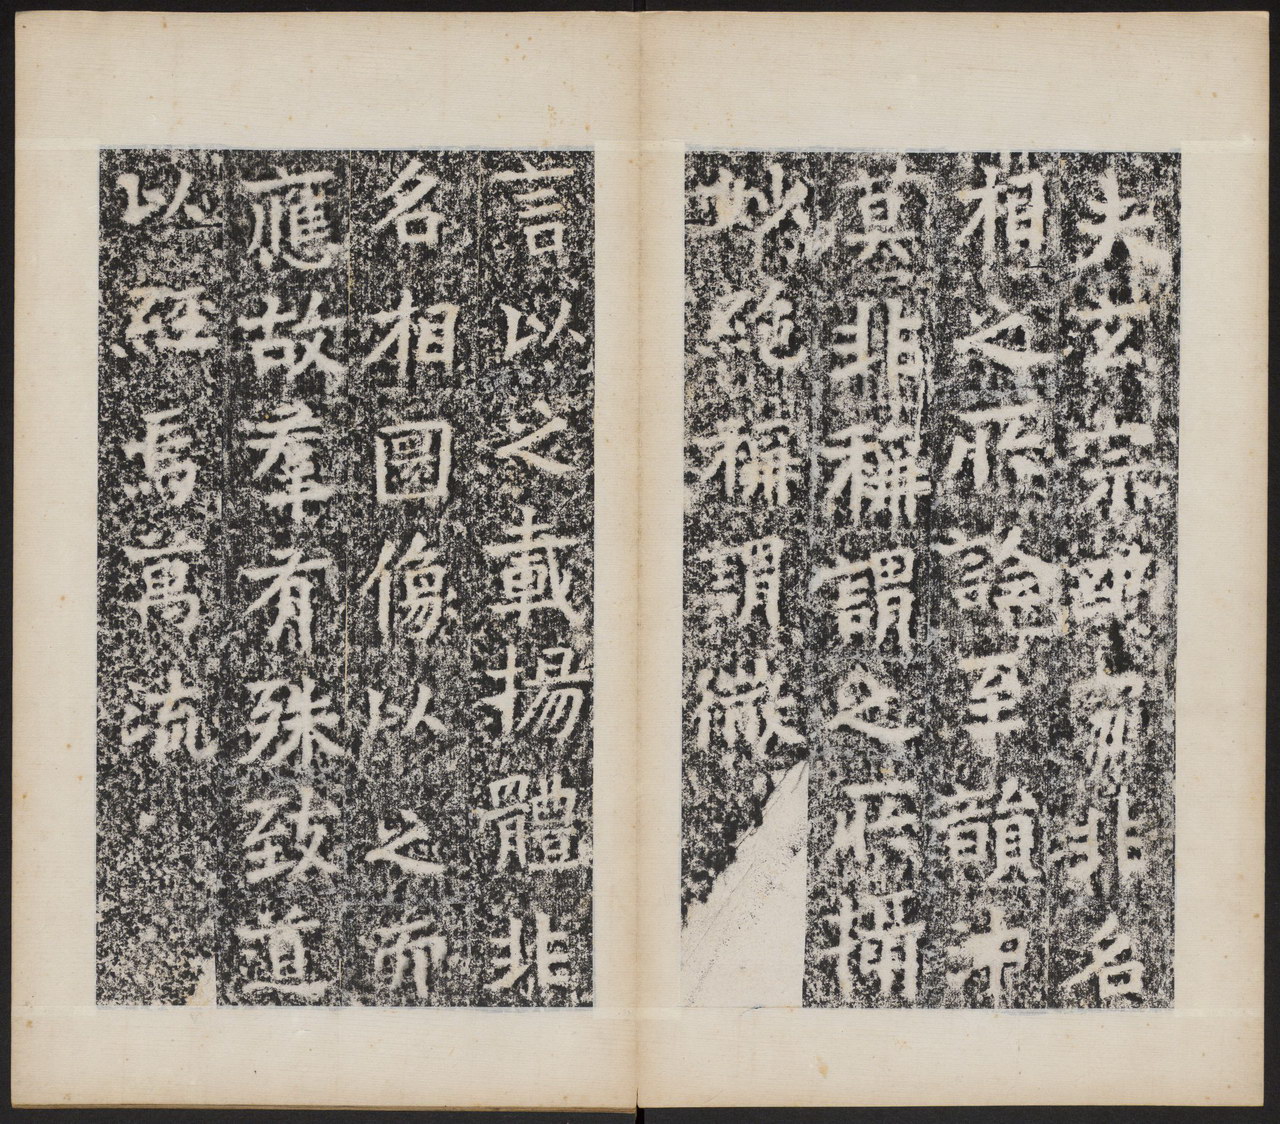 夫玄宗幽寂非名
相之所詮至韻沖
莫非稱謂之所攝
妙絶稱謂微
言以之載揚體非
名相圖像以之而
應故羣有殊致道
以經焉萬流